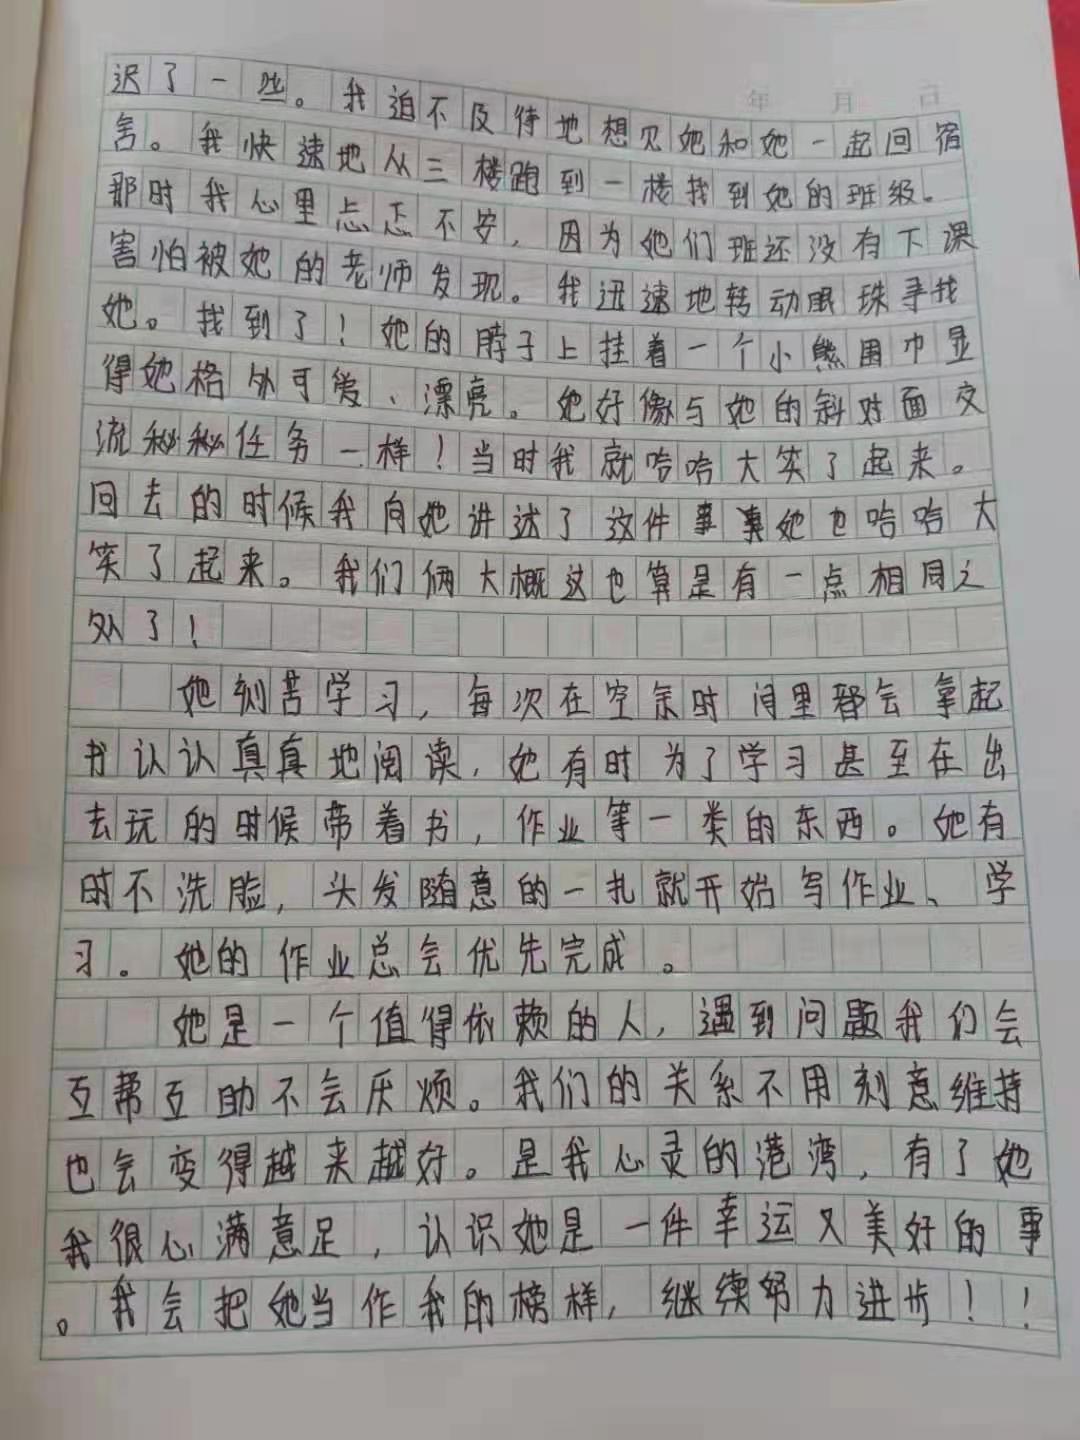 年 月 日
迟了一些。我迫不及待地想见她和她一起回宿
舍。我快速地从三楼跑到一楼找到她的班级。
那时我心里忐忑不安，因为她们班还没有下课
害怕被她的老师发现。我迅速地转动眼珠寻找
她。找到了！她的脖子上挂着一个小熊围巾显
得她格外可爱、漂亮。她好像与她的斜对面交
流秘秘任务一样！当时我就哈哈大笑了起来。
回去的时候我向她讲述了这件事事她也哈哈大
笑了起来。我们俩大概这也算是有一点相同之
处了！
她刻苦学习，每次在空余时间里都会拿起
书认认真真地阅读，她有时为了学习甚至在出
去玩的时候带着书，作业等一类的东西。她有
时不洗脸，头发随意的一扎就开始写作业、学
习。她的作业总会优先完成。
她是一个值得依赖的人，遇到问题我们会
互帮互助不会厌烦。我们的关系不用刻意维持
也会变得越来越好。是我心灵的港湾，有了她
我很心满意足，认识她是一件幸运又美好的事
。我会把她当作我的榜样，继续努力进步！！